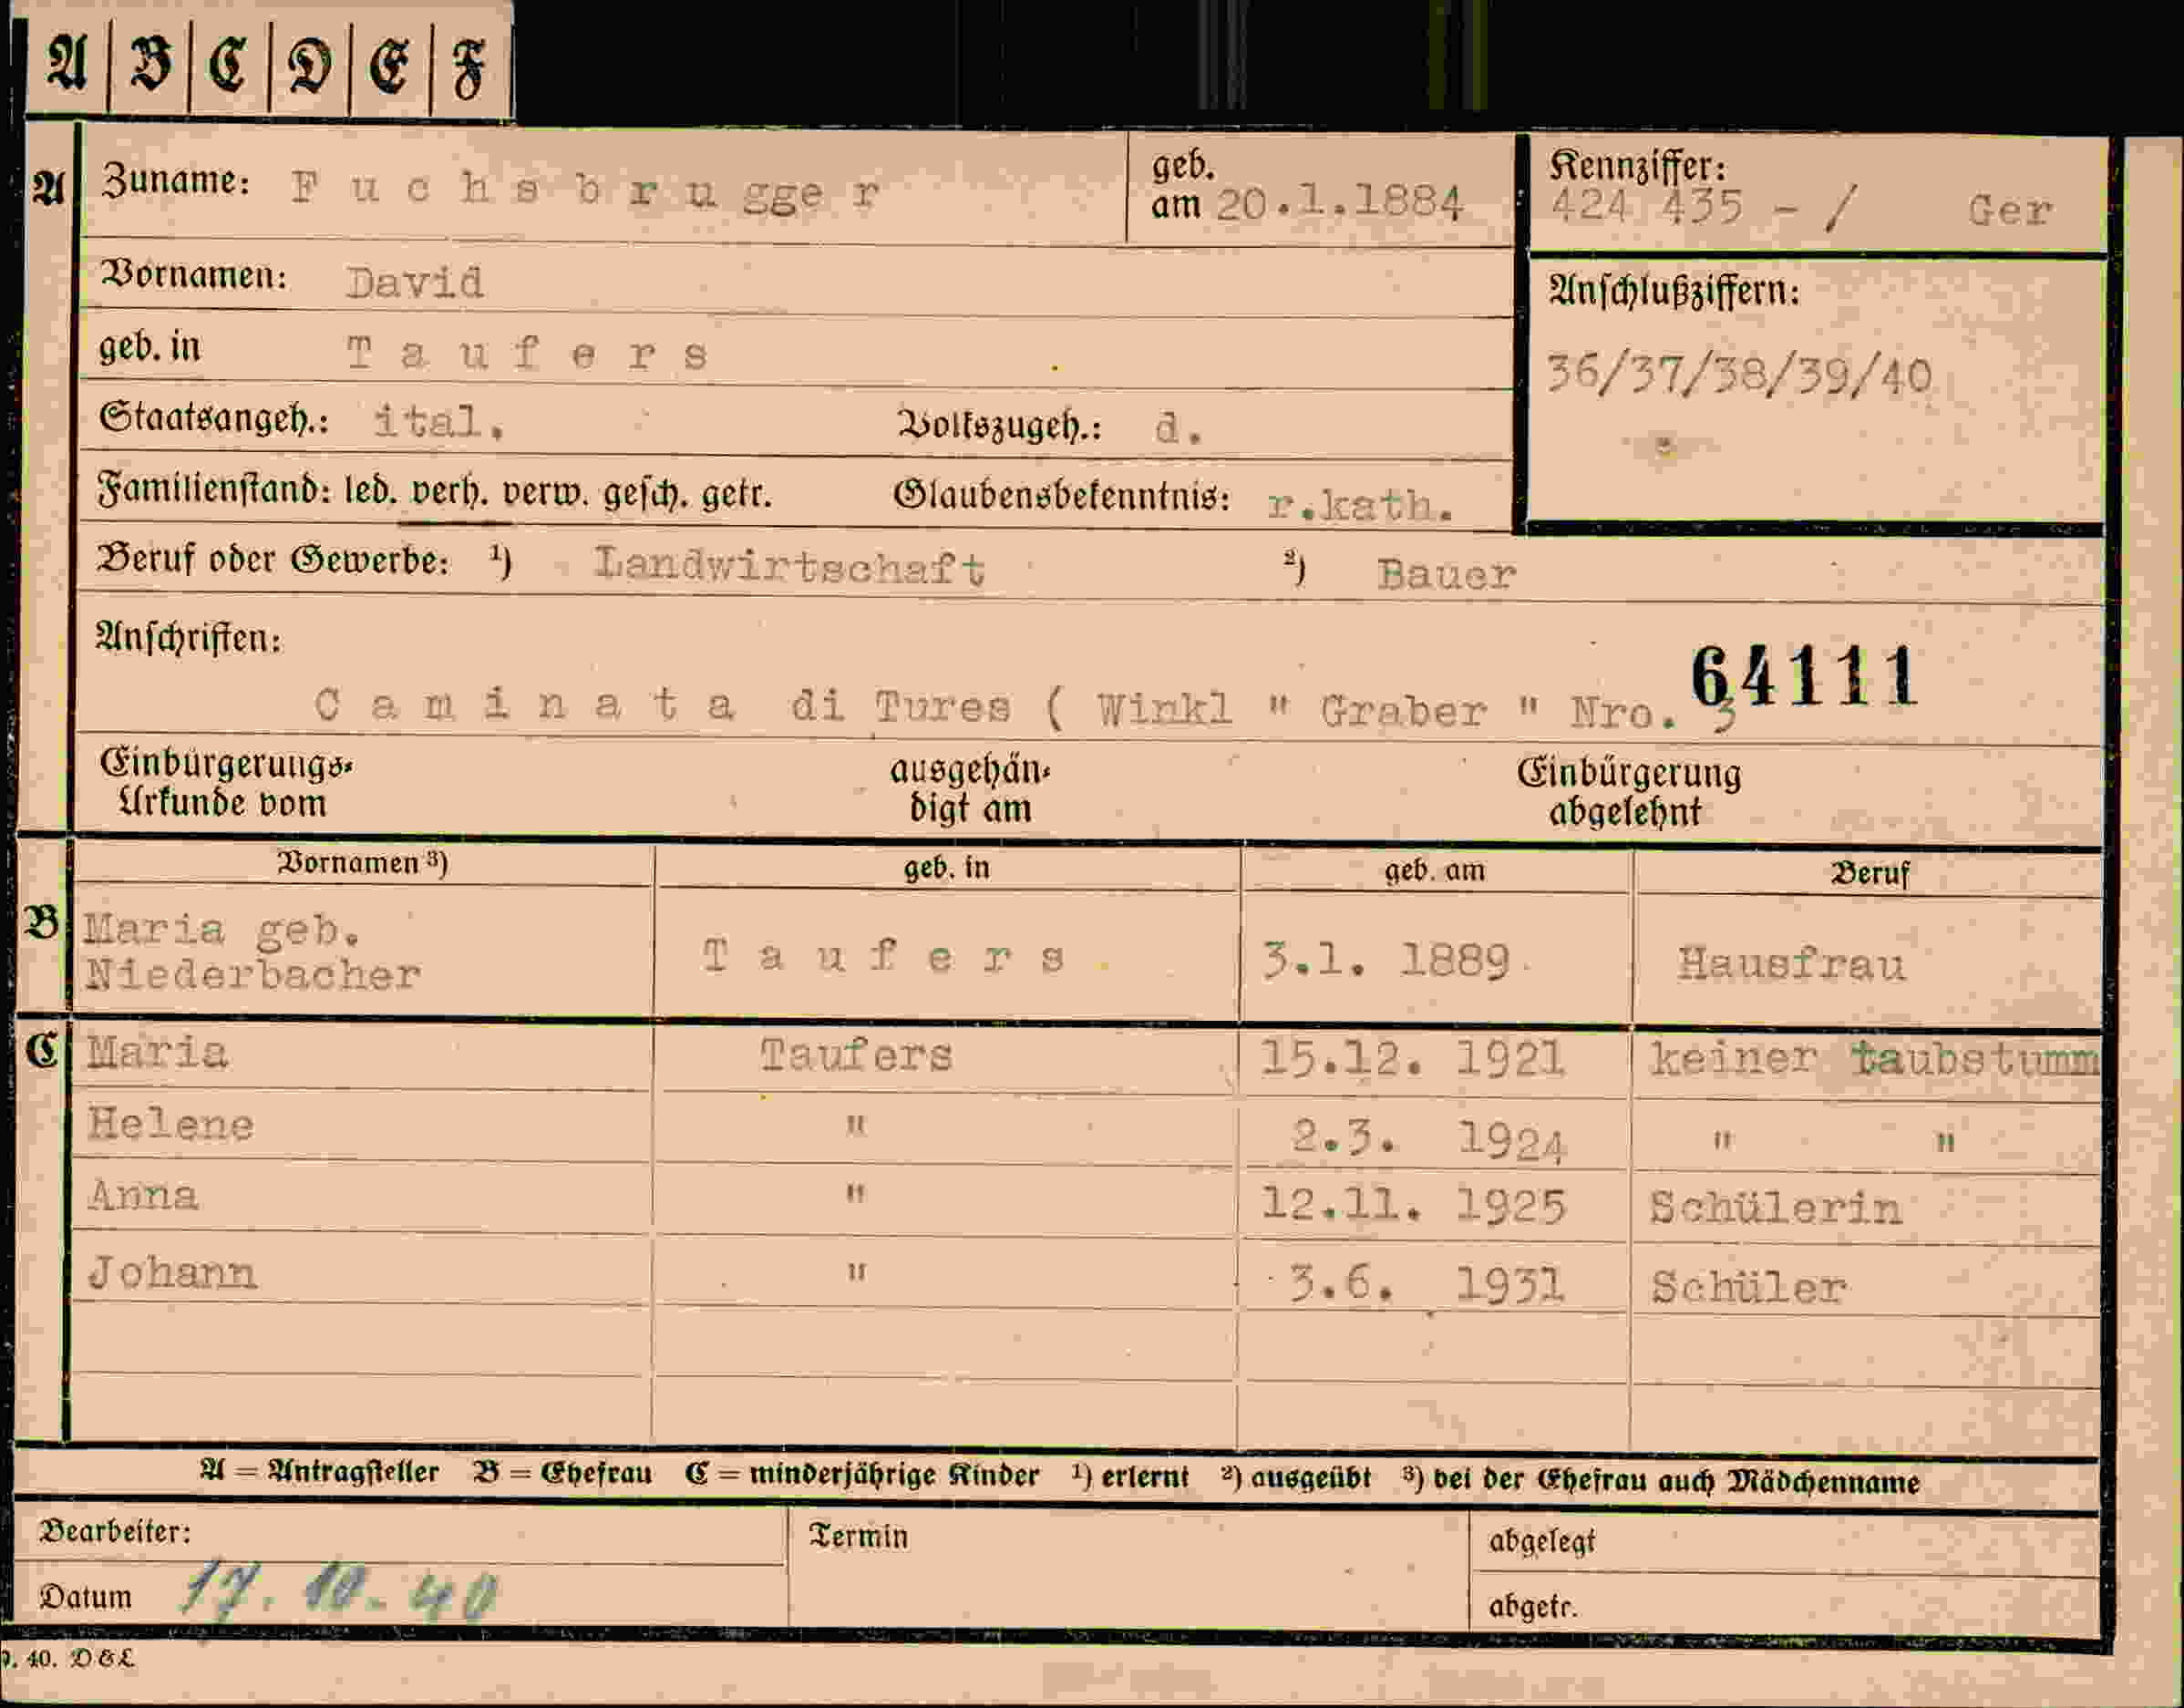 A B C D E F
A Zuname: Fuchsbrugger geb. am 20.1.1884 Kennziffer: 424 435 - / Ger
Vornamen: David
Anschlußziffern:
geb. in Taufers
36/37/38/39/40
Staatsangeh.: ital. Volkszugeh.: d.
Familienstand: led. verh. verw. gesch. getr. Glaubensbekenntnis: r.kath.
Beruf oder Gewerbe: ¹) Landwirtschaft ²) Bauer
Anschriften:
64111
Caminata di Tures ( Winkl " Graber " Nro. 3
Einbürgerungs- ausgehän- Einbürgerung
Urkunde vom digt am abgelehnt
Vornamen ³) geb. in geb. am Beruf
B Maria geb.
Niederbacher Taufers 3.1. 1889 Hausfrau
C Maria Taufers 15.12. 1921 keiner taubstumm
Helene " 2.3. 1924 " "
Anna " 12.11. 1925 Schülerin
Johann " 3.6. 1931 Schüler
A = Antragsteller B = Ehefrau C = minderjährige Kinder ¹) erlernt ²) ausgeübt ³) bei der Ehefrau auch Mädchenname
Bearbeiter: Termin abgelegt
Datum 17. 10. 40 abgetr.
9. 40. D & L